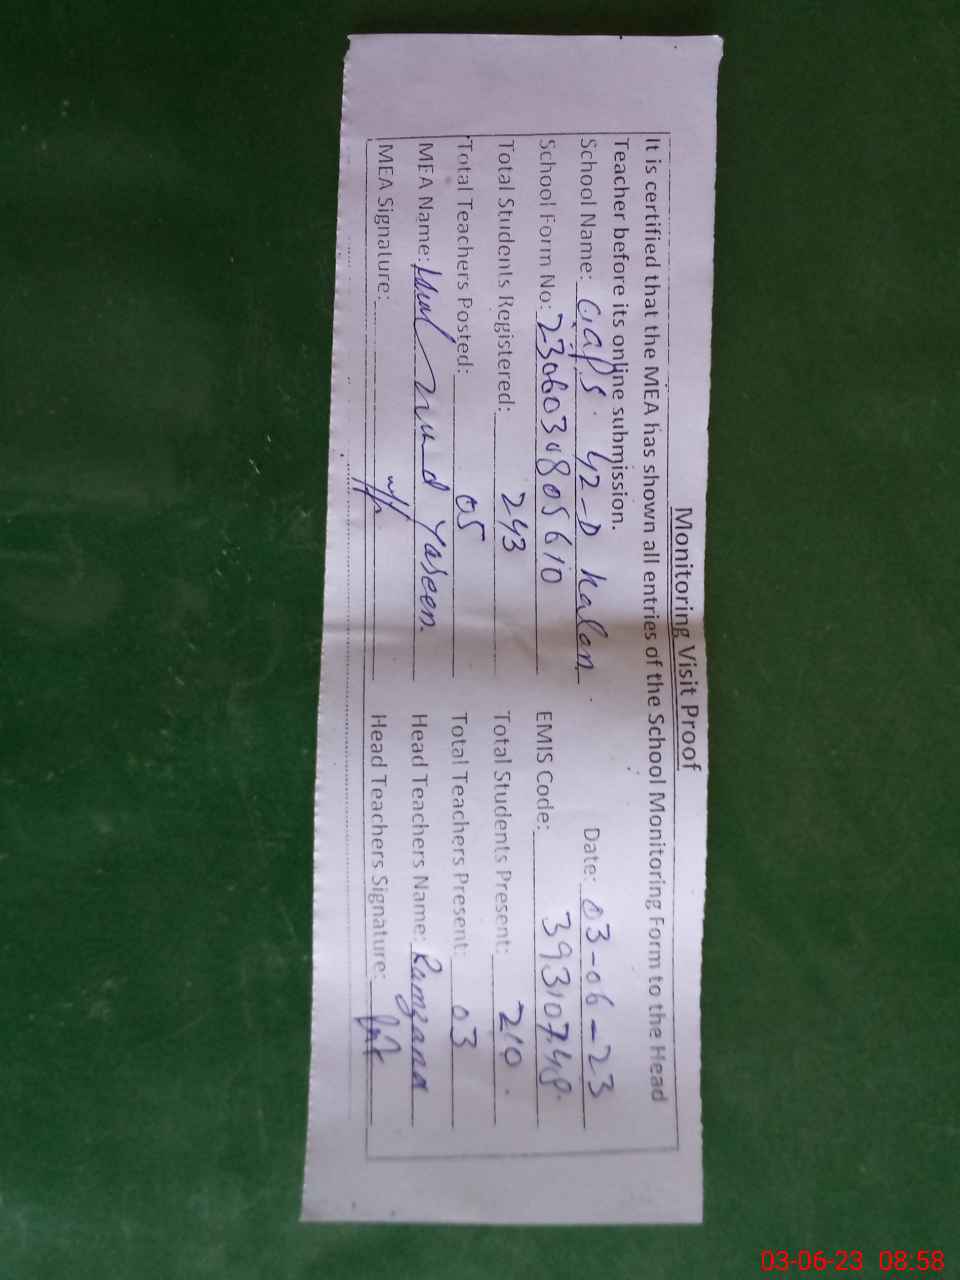 Monitoring Visit Proof
It is certified that the MEA has shown all entries of the School Monitoring Form to the Head
Teacher before its online submission. Date: 03-06-23
School Name: GGPS. 42-D Kalan.
School Form No: 2306030805610 EMIS Code: 39310748
Total Students Registered: 243 Total Students Present: 210.
Total Teachers Posted: 05 Total Teachers Present: 03
MEA Name: Yaseen. Head Teachers Name: Ramzana
MEA Signature: Head Teachers Signature:
03-06-23 08:58